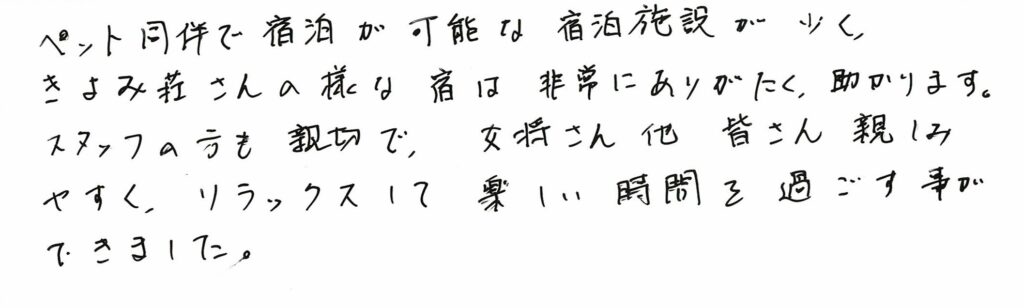 ペット同伴で宿泊が可能な宿泊施設が少く、
きよみ荘さんの様な宿は非常にありがたく、助かります。
スタッフの方も親切で、女将さん他皆さん親しみ
やすく、リラックスして楽しい時間を過ごす事が
できました。